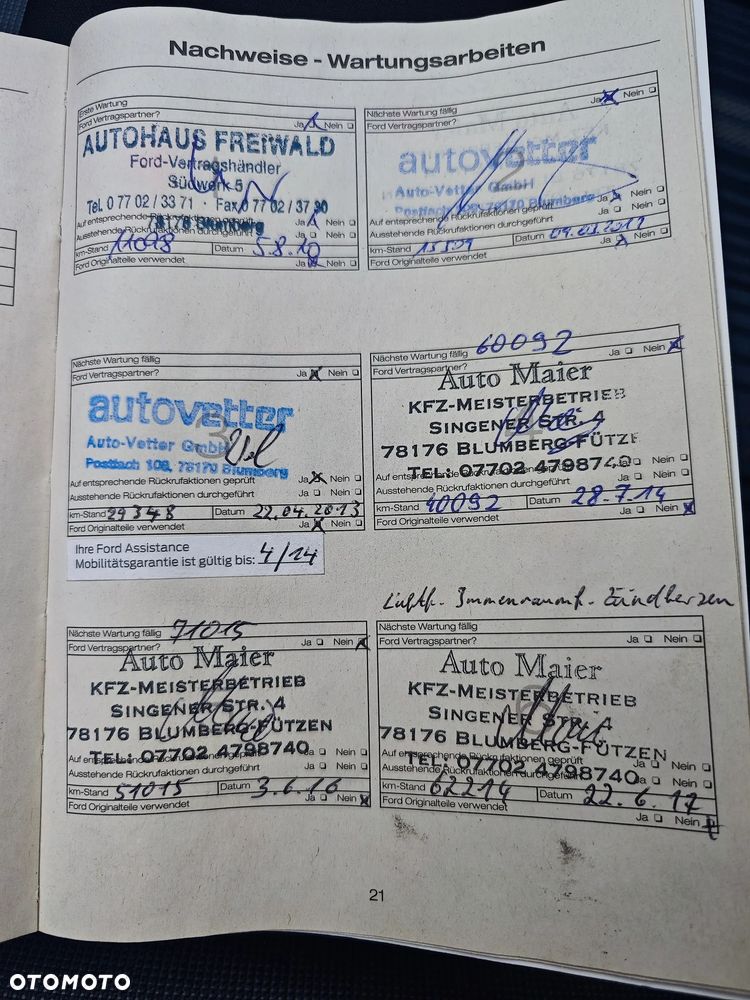 Nachweise - Wartungsarbeiten
Erste Wartung
Ford Vertragspartner? Ja Nein
AUTOHAUS FREIWALD
Ford-Vertragshändler
Südwerk 5
Tel. 0 77 02 / 33 71 · Fax 0 77 02 / 37 90
78176 Blumberg
Auf entsprechende Rückrufaktionen geprüft Ja Nein
Ausstehende Rückrufaktionen durchgeführt Ja Nein
km-Stand Datum 5.8.10
Ford Originalteile verwendet Ja Nein
Nächste Wartung fällig
Ford Vertragspartner? Ja Nein
autovetter
Auto-Vetter GmbH
Postfach 108, 78170 Blumberg
Auf entsprechende Rückrufaktionen geprüft Ja Nein
Ausstehende Rückrufaktionen durchgeführt Ja Nein
km-Stand Datum
Ford Originalteile verwendet Ja Nein
Nächste Wartung fällig
Ford Vertragspartner? Ja Nein
3
autovetter
Auto-Vetter GmbH
Postfach 108, 78170 Blumberg
Auf entsprechende Rückrufaktionen geprüft Ja Nein
Ausstehende Rückrufaktionen durchgeführt Ja Nein
km-Stand 29348 Datum 22.04.2013
Ford Originalteile verwendet Ja Nein
Ihre Ford Assistance
Mobilitätsgarantie ist gültig bis: 4/14
Nächste Wartung fällig 60092
Ford Vertragspartner? Ja Nein
Auto Maier
KFZ-MEISTERBETRIEB
SINGENER STR. 4
78176 BLUMBERG-FÜTZE
TEL: 07702 4798740
Auf entsprechende Rückrufaktionen geprüft Ja Nein
Ausstehende Rückrufaktionen durchgeführt Ja Nein
km-Stand 40092 Datum 28.7.14
Ford Originalteile verwendet Ja Nein
Nächste Wartung fällig 71015
Ford Vertragspartner? Ja Nein
Auto Maier
KFZ-MEISTERBETRIEB
SINGENER STR. 4
78176 BLUMBERG-FÜTZEN
TEL: 07702 4798740
Auf entsprechende Rückrufaktionen geprüft Ja Nein
Ausstehende Rückrufaktionen durchgeführt Ja Nein
km-Stand 51015 Datum 3.6.16
Ford Originalteile verwendet Ja Nein
Luftf. Innenraumf. Zündkerzen
Nächste Wartung fällig Ja Nein
Ford Vertragspartner?
Auto Maier
KFZ-MEISTERBETRIEB
SINGENER STR. 4
78176 BLUMBERG-FÜTZEN
TEL: 07702 4798740
Auf entsprechende Rückrufaktionen geprüft Ja Nein
Ausstehende Rückrufaktionen durchgeführt Ja Nein
km-Stand 62214 Datum 22.6.17
Ford Originalteile verwendet Ja Nein
21
OTOMOTO